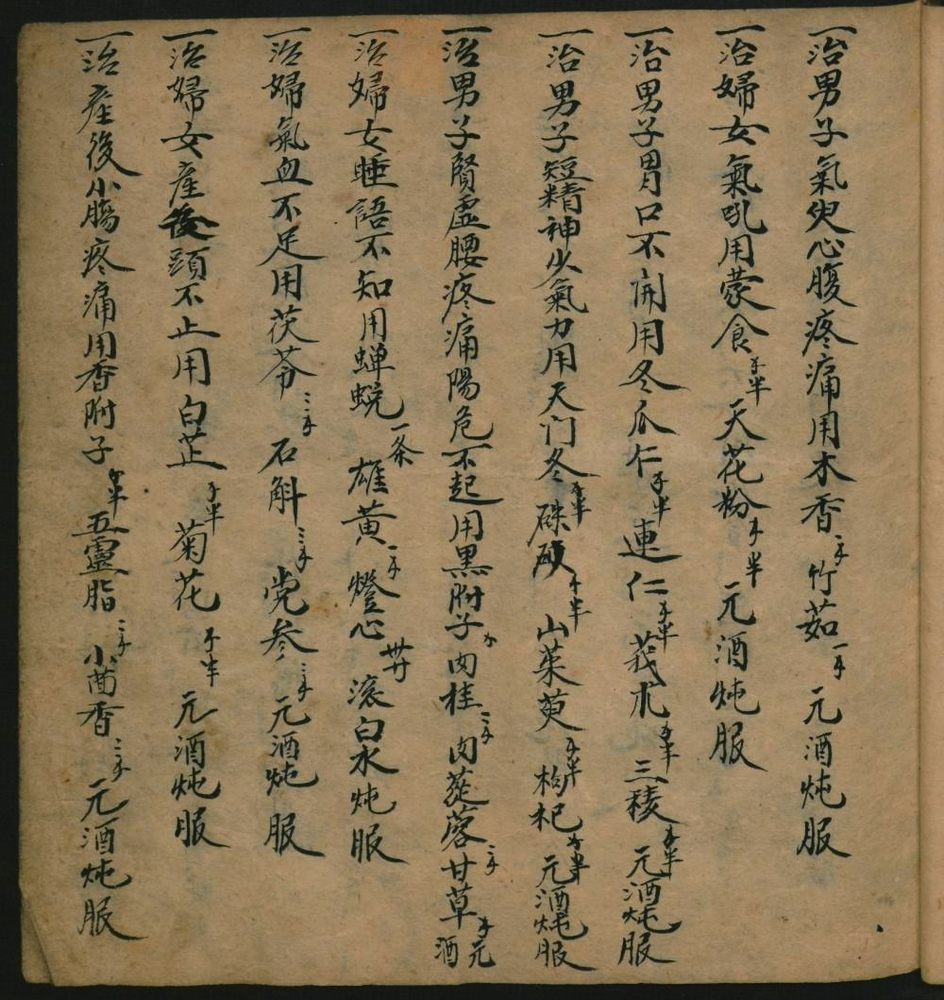 一治男子氣虫心腹疼痛用木香二钱竹茹一钱元酒炖服
一治婦女氣吼用蒙食钱半天花粉钱半元酒炖服
一治男子胃口不開用冬瓜仁钱半連仁钱半莪朮钱半三稜钱半元酒炖服
一治男子短精神少氣力用天门冬钱半硃砂钱半山茱萸钱半枸杞钱半元酒炖服
一治男子腎虛腰疼痛陽危不起用黑附子肉桂二钱肉蓯蓉二钱甘草钱元酒
一治婦女睡語不知用蟬蜕一条雄黄一钱燈心卅滚白水炖服
一治婦氣血不足用茯苓二钱石斛二钱党参二钱元酒炖服
一治婦女産後頭不止用白芷钱半菊花钱半元酒炖服
一治産後小腸疼痛用香附子钱半五靈脂二钱小茴香二钱元酒炖服